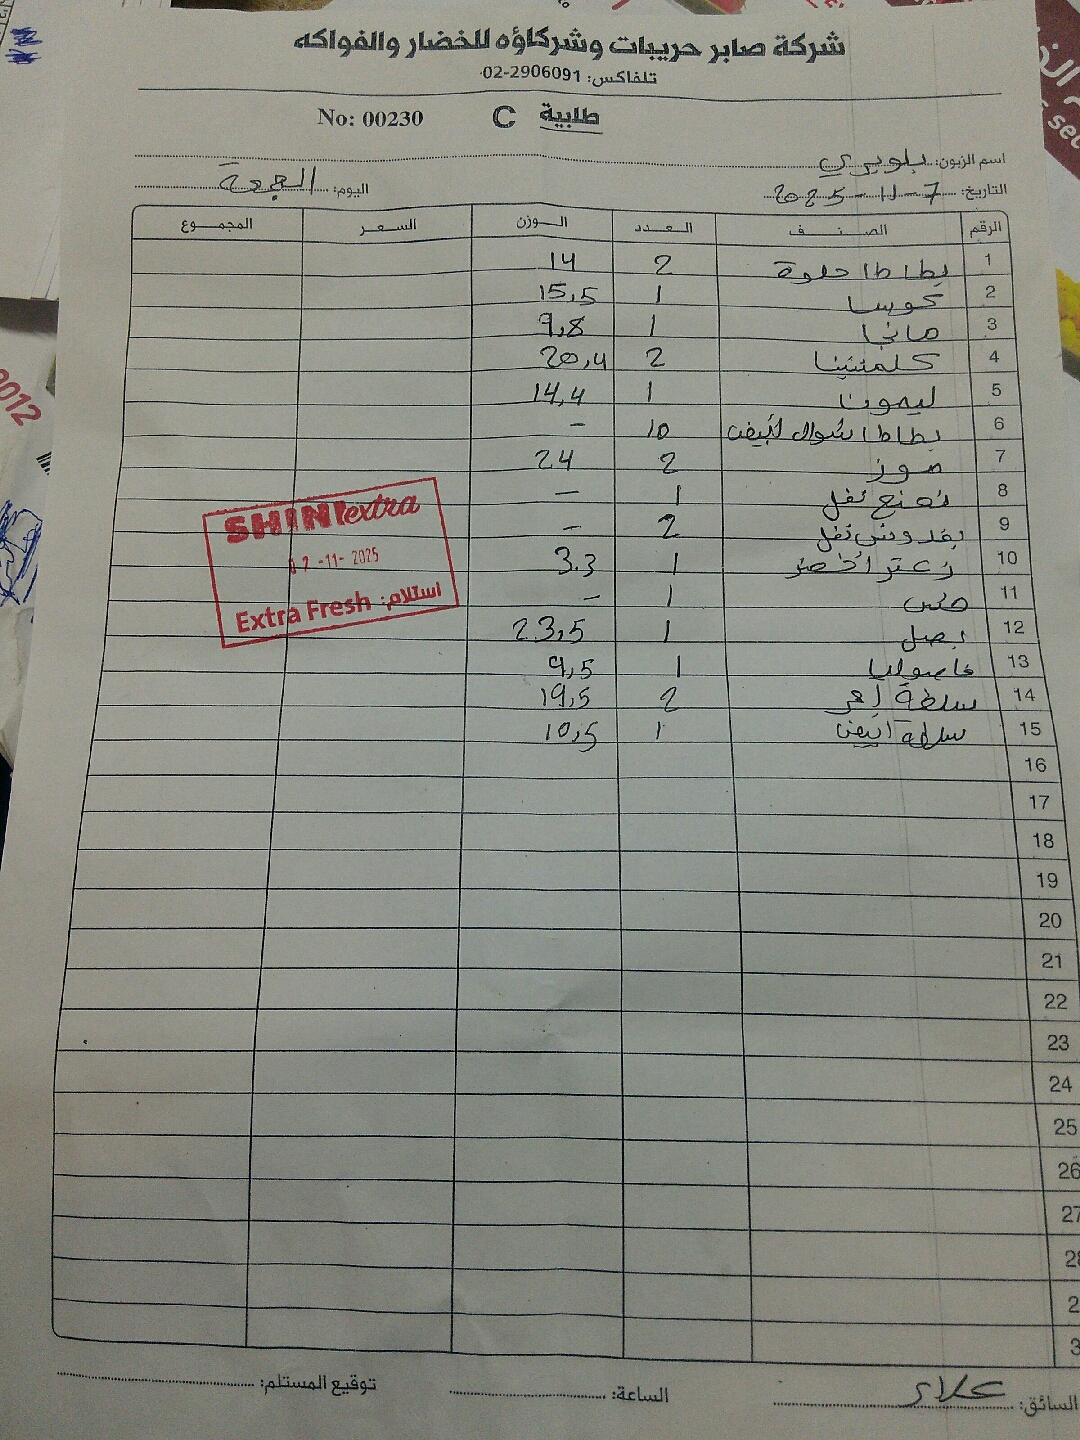 شركة صابر حريبات وشركاؤه للخضار والفواكه
تلفاكس: 02-2906091
طلبية C No: 00230
اسم الزبون: بلويري
التاريخ: 7-11-2025 اليوم: الجمعة
الرقم الصنف العدد الوزن السعر المجموع
1 بطاطا حلوة 2 14
2 كوسا 1 15,5
3 مانجا 1 9,8
4 كلمنتينا 2 20,4
5 ليمون 1 14,4
6 بطاطا شوال 10 -
7 موز 2 24
8 نعنع نفل 1 -
9 بقدونس نفل 2 -
10 زعتر أخضر 1 3.3
11 خس 1 -
12 بصل 1 23,5
13 فاصوليا 1 9,5
14 سلطة احمر 2 19,5
15 سلطة ابيض 1 10,5
16
17
18
19
20
21
22
23
24
25
26
27
28
2
3
SHINI extra
07-11-2025
Extra Fresh استلام:
السائق: علاء الساعة: توقيع المستلم:
2012